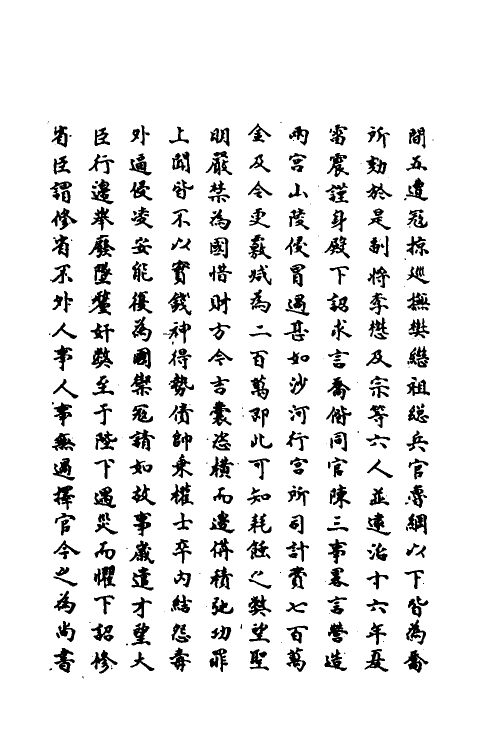 間五遭冦掠巡撫樊繼祖総兵官魯綱以下皆為喬
所劾於是副將李懋及宗等六人並逮治十六年夏
雷震謹身殿下詔求言喬偕同官陳三事畧言營造
兩宫山陵侵冒過甚如沙河行宫所司計費七百萬
金及今更覈烕為二百萬即此可知耗蝕之獘望聖
明嚴禁為國惜財方今吉囊恣横而邊備積弛功罪
上聞皆不以實錢神得勢債帥乗權士卒内結怨毒
外逼侵凌安能復為國禦冦請如故事嚴遣才望大
臣行邊举廢墜釐奸獘至于陛下遇災而懼下詔修
省臣謂修省不外人事人事無過擇官今之為尚書